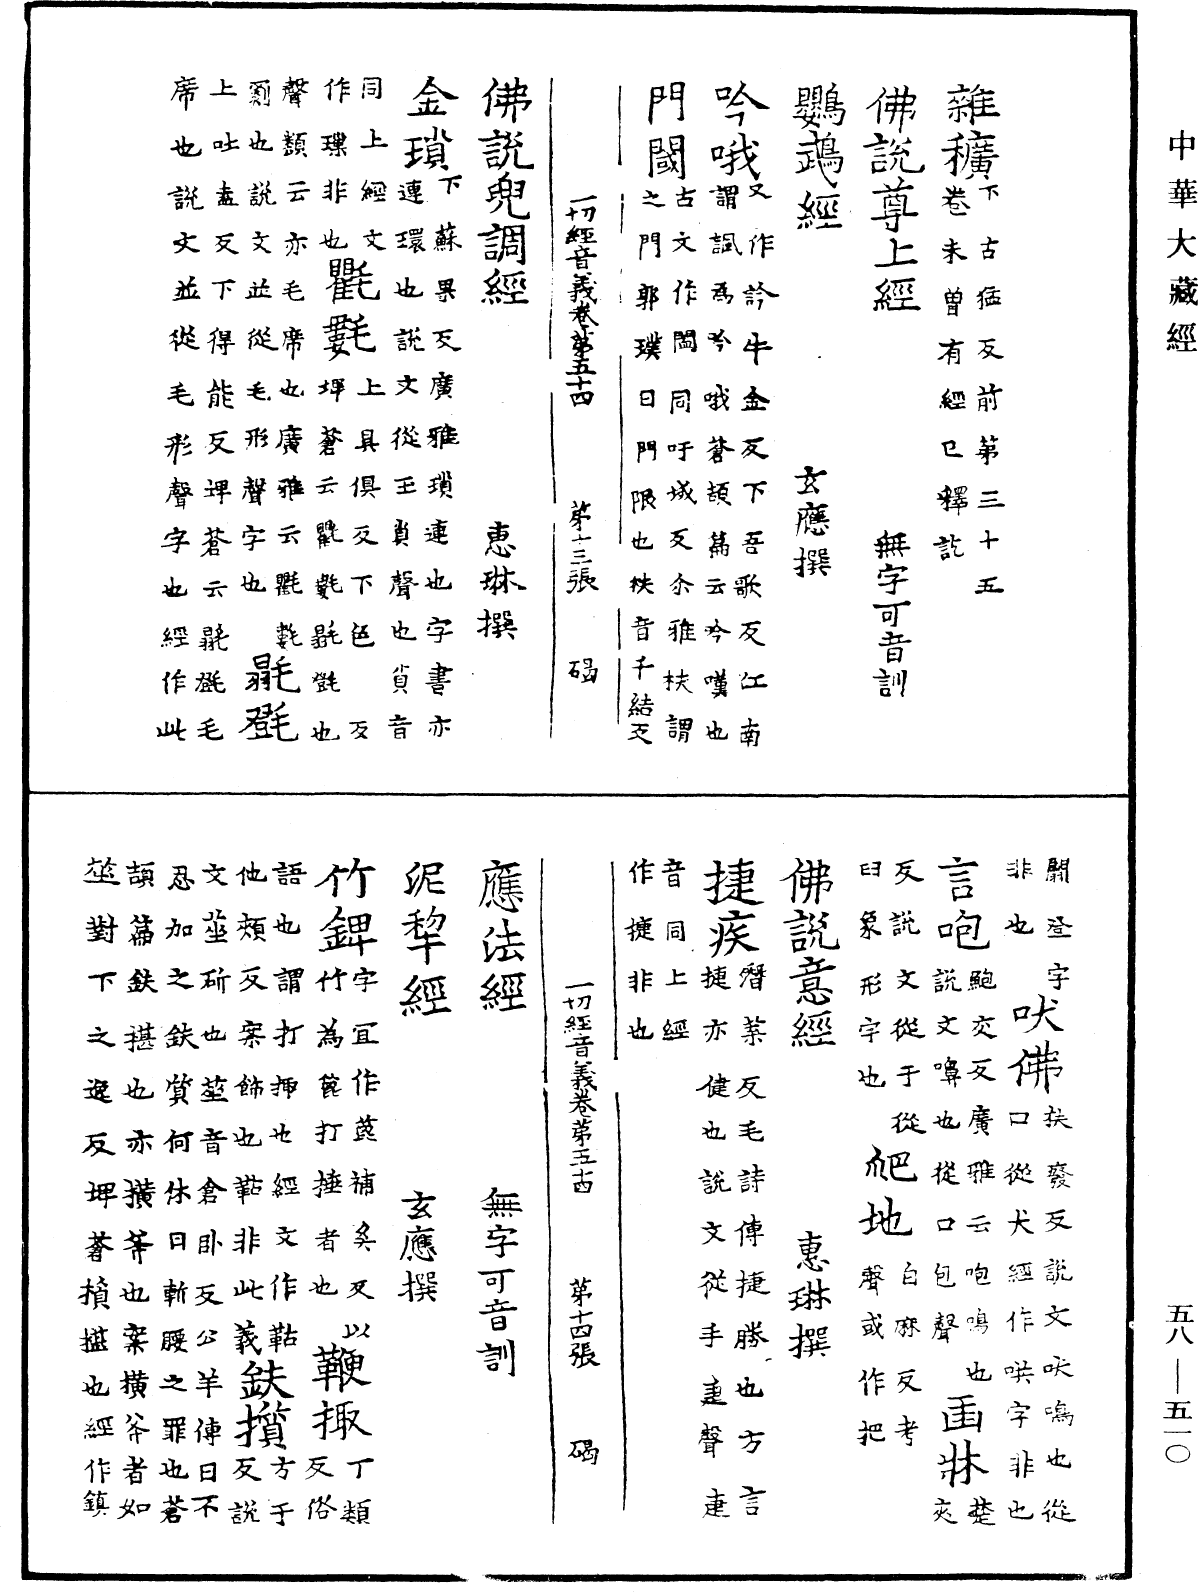 中華大藏經
雜穬下古猛反前第三十五
卷未曾有經已釋訖
佛說尊上經 無字可音訓
鸚鵡經 玄應撰
吟哦又作訡牛金反下吾歌反江南
謂諷為吟哦蒼頡篇云吟嘆也
門閾古文作閾同吁域反尒雅柣謂
之門郭璞曰門限也柣音千結反
一切經音義卷第五十四 第十三張 碣
佛說兜調經 惠琳撰
金瑣下蘇果反廣雅瑣連也字書亦
連環也說文從王𧴪聲也𧴪音
同上經文
作璅非也氍㲣上具俱反下色反
埤蒼云氍㲣㲮㲪也
聲類云亦毛席也廣雅云氍㲣
罽也說文並從毛形聲字也㲮㲪
上吐盍反下得能反埤蒼云㲮㲪毛
席也說文並從毛形聲字也經作此
闘登字
非也吠佛扶發反說文吠鳴也從
口從犬經作哄字非也
言咆鮑交反廣雅云咆鳴也
說文嘷也從口包聲臿牀楚
夾
反說文從干從
臼象形字也爬地白麻反考
聲或作把
佛說意經 惠琳撰
捷疾潛葉反毛詩傳捷勝也方言
捷亦健也說文從手疌聲疌
音同上經
作捷非也
一切經音義卷第五十四 第十四張 碣
應法經 無字可音訓
泥犂經 玄應撰
竹錍字宜作䇑補奚反以
竹為䇑打捶者也鞭掫丁類
反俗
語也謂打揷也經文作鞊
他頰反案飾也鞊非此義鈇㩫方于
反說
文莝斫也莝音倉卧反公羊傳曰不
忍加之鈇質何休曰斬腰之罪也蒼
頡篇鈇椹也亦橫斧也案橫斧者如
莝對下之逸反埤蒼櫍椹也經作鎮
五八—五一〇